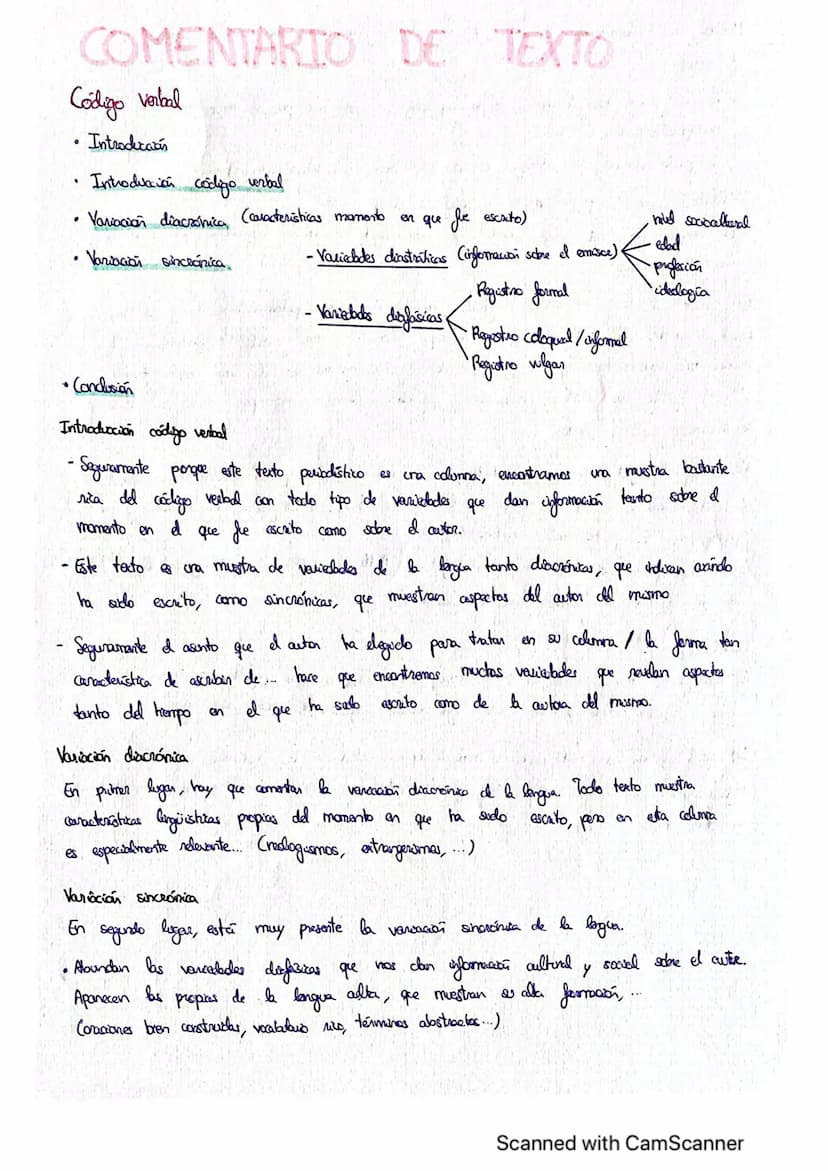 COMENTARIO DE TEXTO
Código verbal
• Introducción
• Introducción código verbal
• Variación diacrónica (características momento en que fue escrito)
• Variación sincrónica
- Variedades diastráticas (información sobre el emisor)
nivel sociocultural
edad
profesión
ideología
- Variedades diafásicas
Registro formal
Registro coloquial / informal
Registro vulgar
• Conclusión
Introducción código verbal
- Seguramente porque este texto periodístico es una columna, encontramos una muestra bastante
rica del código verbal con todo tipo de variedades que dan información tanto sobre el
momento en el que fue escrito como sobre el autor.
- Este texto es una muestra de variedades de la lengua tanto diacrónicas, que indican cuándo
ha sido escrito, como sincrónicas, que muestran aspectos del autor del mismo
- Seguramente el asunto que el autor ha elegido para tratar en su columna / la forma tan
característica de escribir de ... hace que encontremos muchas variedades que revelan aspectos
tanto del tiempo en el que ha sido escrito como de la autora del mismo.
Variación diacrónica
En primer lugar, hay que comentar la variación diacrónica de la lengua. Todo texto muestra
características lingüísticas propias del momento en que ha sido escrito, pero en esta columna
es especialmente relevante... (neologismos, extrangerismos, ...)
Variación sincrónica
En segundo lugar, está muy presente la variación sincrónica de la lengua.
• Abundan las variedades diafásicas que nos dan información cultural y social sobre el autor.
Aparecen las propias de la lengua alta, que muestran su alta formación, ...
(oraciones bien construidas, vocabulario rico, términos abstractos...)
Scanned with CamScanner